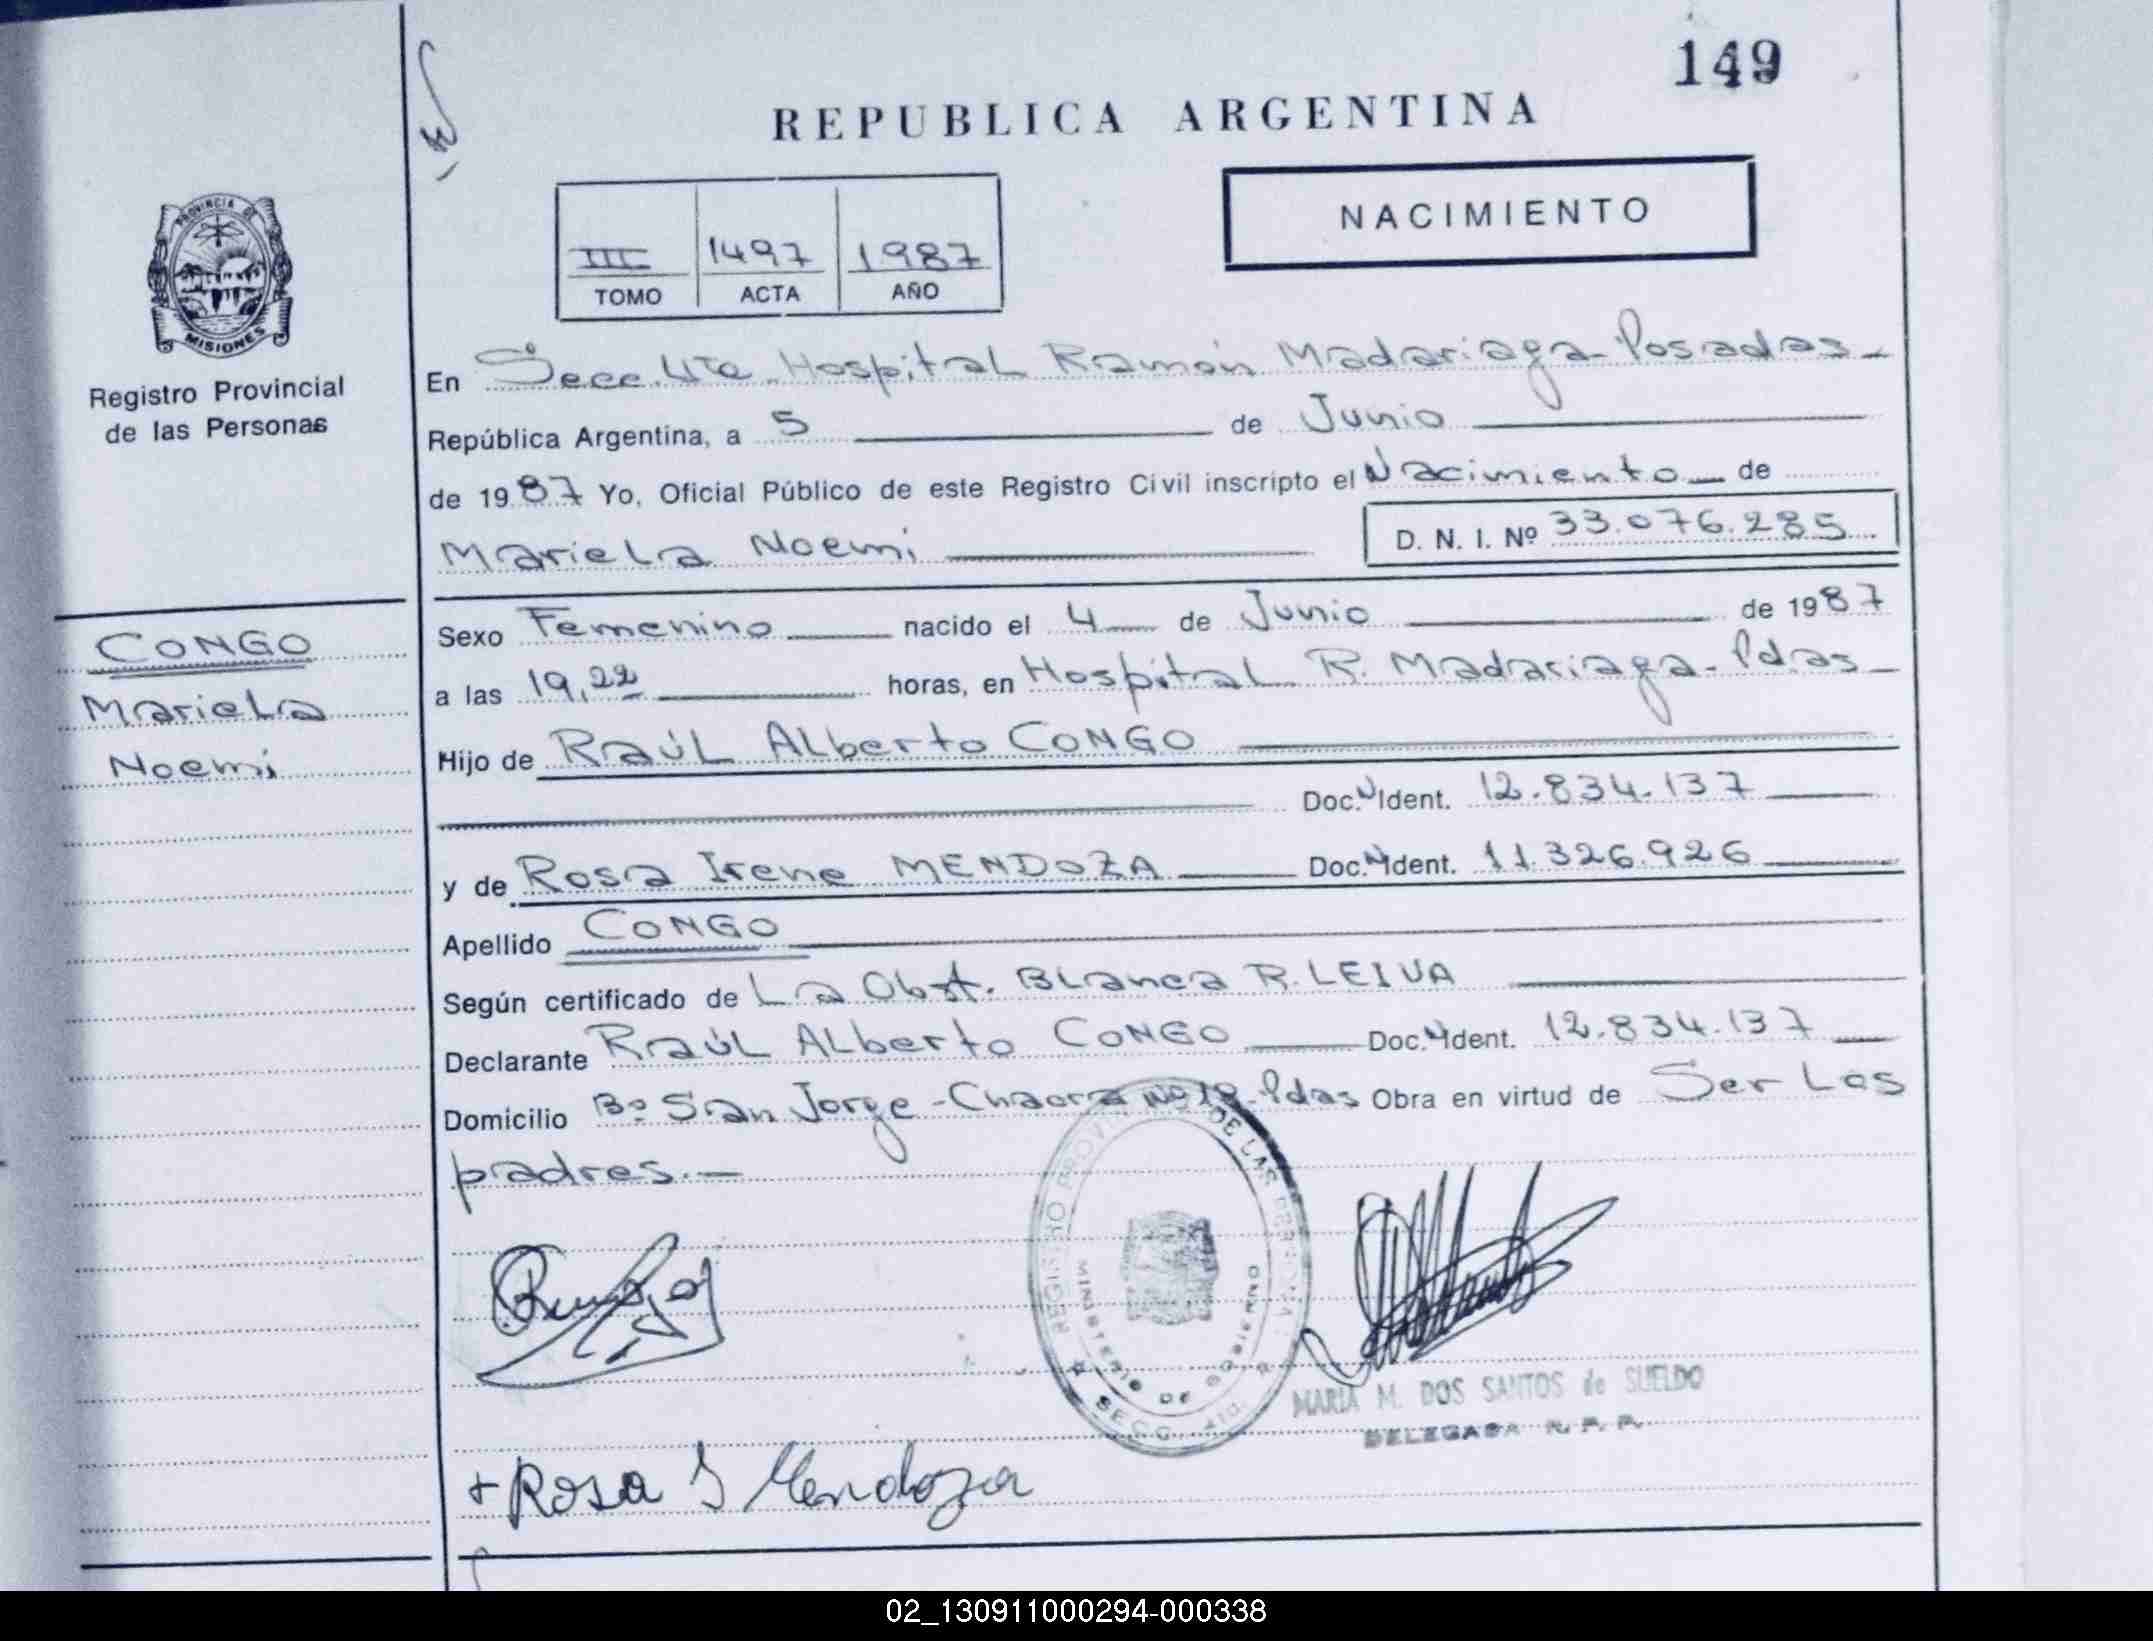 149
REPUBLICA ARGENTINA
NACIMIENTO
III 1497 1987
TOMO ACTA AÑO
PROVINCIA DE
MISIONES
Registro Provincial
de las Personas
CONGO
Mariela
Noemi
En Secc. 4ta Hospital Ramón Madariaga - Posadas -
República Argentina, a 5 de Junio
de 1987 Yo, Oficial Público de este Registro Civil inscripto el Nacimiento de
Mariela Noemi D. N. I. Nº 33.076.285
Sexo Femenino nacido el 4 de Junio de 1987
a las 19,22 horas, en Hospital R. Madariaga - Pdas -
Hijo de Raúl Alberto CONGO
Doc. N Ident. 12.834.137
y de Rosa Irene MENDOZA Doc. N Ident. 11.326.926
Apellido CONGO
Según certificado de La Obst. Blanca R. LEIVA
Declarante Raúl Alberto CONGO Doc. N Ident. 12.834.137
Domicilio Bº San Jorge - Chacra Nº 18 - Pdas Obra en virtud de Ser Los
padres. -
REGISTRO PROVINCIAL DE LAS PERSONAS
MINISTERIO DE GOBIERNO
SECC. 4ta.
MARIA M. DOS SANTOS de SUELDO
DELEGADA R. P. P.
+ Rosa I Mendoza
02_130911000294-000338